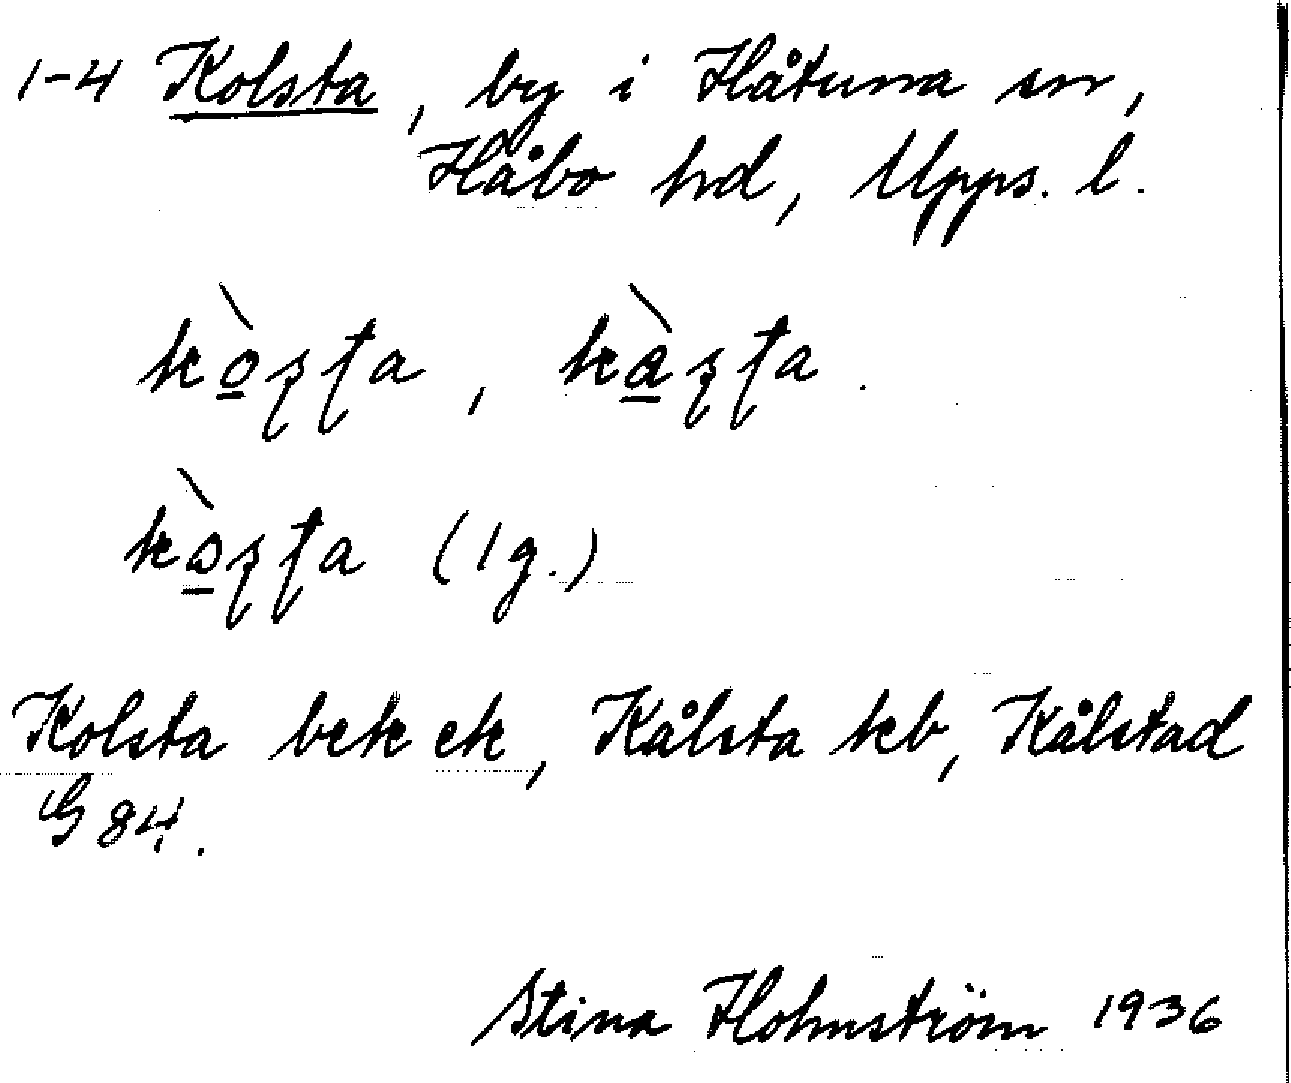 1-4 Kolsta, by i Håtuna sn,
Håbo hd, Upps. l.
kò̱ʂʈa, kà̱ʂʈa.
kɔ̱̀ʂʈa (1 g.)
Kolsta bek ek, Kålsta kb, Kålstad
G 84.
Stina Holmström 1936